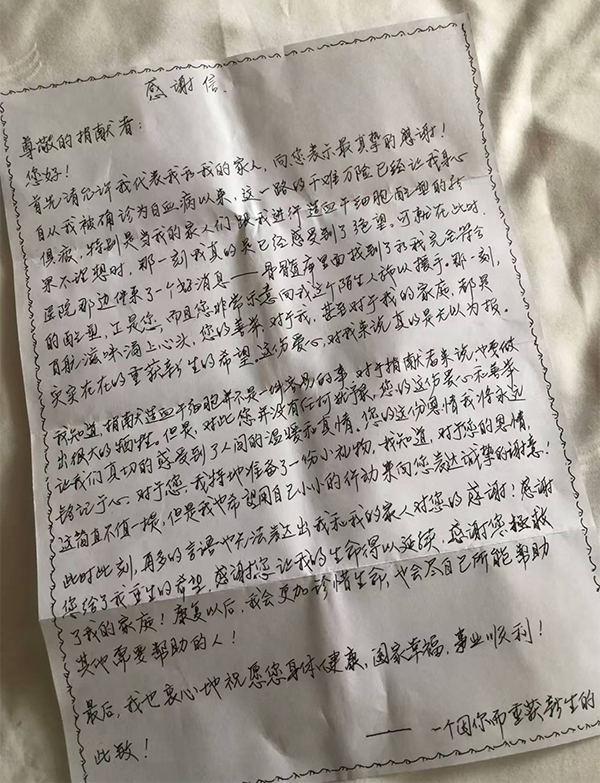 感谢信
尊敬的捐献者：
您好！
首先请允许我代表我和我的家人，向您表示最真挚的感谢！
自从我被确诊为白血病以来，这一路的千难万险已经让我身心
俱疲，特别是当我的家人们跟我进行造血干细胞配型的结
果不理想时，那一刻我真的是已经感受到了绝望。可就在此时
医院那边传来了一个好消息——骨髓库里面找到了和我完全符合
的配型，正是您，而且您非常乐意向我这个陌生人施以援手。那一刻，
百般滋味涌上心头，您的善举，对于我，甚至对于我的家庭，都是
实实在在的重获新生的希望。这份爱心，对我来说真的是无以为报。
我知道，捐献造血干细胞并不是一件容易的事，对于捐献者来说也要做
出很大的牺牲。但是，对此您并没有任何犹豫，您的这份爱心和善举
让我们真切的感受到了人间的温暖和真情。您的这份恩情我将永远
铭记于心。对于您，我特地准备了一份小礼物，我知道，对于您的恩情，
这简直不值一提，但是我也希望用自己小小的行动来向您表达诚挚的谢意！
此时此刻，再多的言语也无法表达出我和我的家人对您的感谢！感谢
您给了我重生的希望，感谢您让我的生命得以延续，感谢您拯救
了我的家庭！康复以后，我会更加珍惜生命，也会尽自己所能帮助
其他需要帮助的人！
最后，我也衷心地祝愿您身体健康，阖家幸福，事业顺利！
此致！
——一个因你而重获新生的